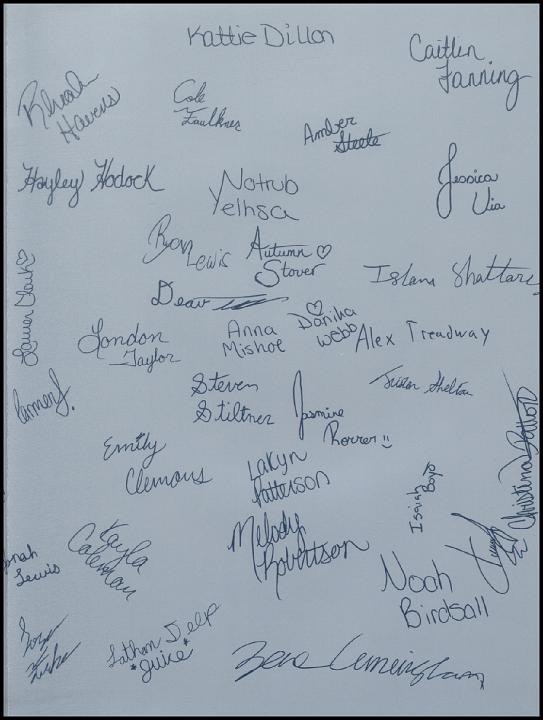 Kattie Dillon
Caitlin
Fanning
Rhiah
Havens
Cole
Faulkner
Amber
Steele
Hayley Hodock
Notrub
Yelhsa
Jessica
Via
Ryan
Lewis
Autumn ♡
Stover
Islam Shattars
Lauren Clark ♡
London
Taylor
Anna
Mishoe
♡
Danika
Webb
Alex Treadway
Carmen J.
Steven
Stiltner
Jasmine
Rorrer :)
Shelton
Christina
Emily
Clemons
Lakyn
Patterson
Isaiah
Boyd
onah
Lewis
Kayla
Coleman
Melody
Robertson
Noah
Birdsall
Delp
*Juice*
Cunningham